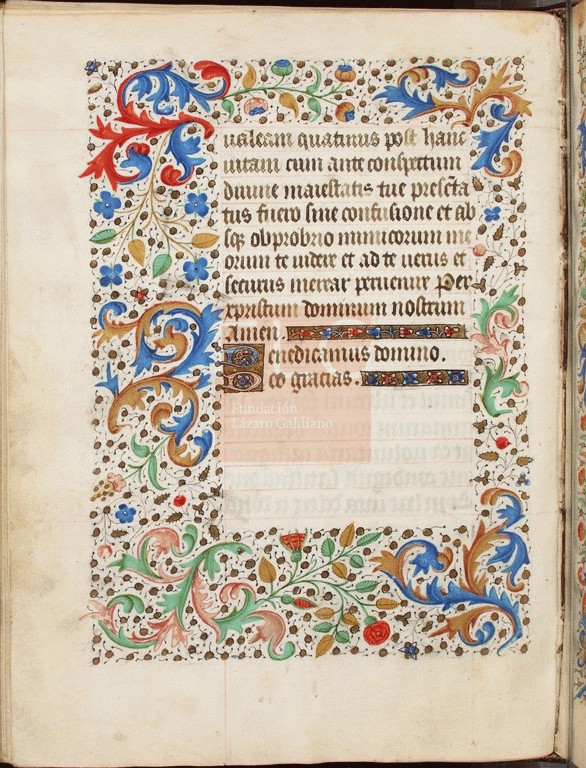 ualeam quatinus post hanc
uitam cum ante conspectum
diuine maiestatis tue presẽta
tus fuero sine confusione et ab
sq̃ obprobrio inimicorum me
orum te uidere et ad te uerus et
securus merear peruenire Per
xpristum dominum nostrum
Amen.
Benedicamus domino.
Deo gracias.
Fundación
Lázaro Galdiano